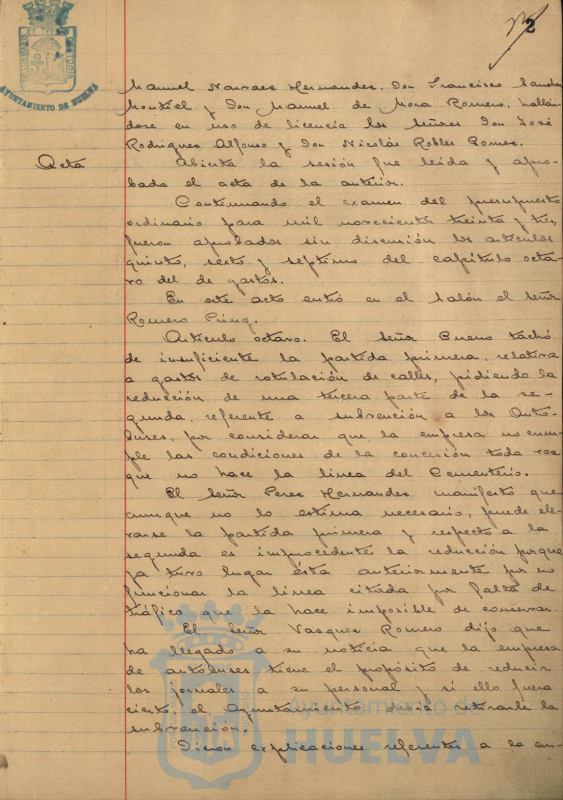 2
AYUNTAMIENTO DE HUELVA
Manuel Narvaez Hernandez, Don Francisco Sanchez
Montiel y Don Manuel de Mora Romero, hallan-
dose en uso de licencia los señores Don José
Rodriguez Alfonso y Don Nicolás Robles Gomez.
Acta
Abierta la sesión fue leida y apro-
bada el acta de la anterior.
Continuando el examen del presupuesto
ordinario para mil novecientos treinta y tres,
fueron aprobados sin discusión los artículos
quinto, sexto y septimo del capítulo octa-
vo del de gastos.
En este acto entró en el salón el señor
Romero
Artículo octavo. El señor Bueno tachó
de insuficiente la partida primera, relativa
a gastos de rotulación de calles, pidiendo la
reducción de una tercera parte de la se-
gunda, referente a subvención a los Auto-
buses, por considerar que la empresa no cum-
ple las condiciones de la concesión toda vez
que no hace la linea del Cementerio.
El señor Perez Hernandez manifestó que
aunque no lo estima necesario, puede ele-
varse la partida primera y respecto a la
segunda es improcedente la reducción porque
ya tuvo lugar ésta anteriormente por no
funcionar la linea citada por falta de
tráfico que la hace imposible de conservar.
El señor Vasquez Romero dijo que
ha llegado a su noticia que la empresa
de autobuses tiene el propósito de reducir
los jornales a su personal y si ello fuera
cierto, el Ayuntamiento debía retirarle la
subvención.
Dieron explicaciones referentes a la em-
Ayuntamiento de
HUELVA